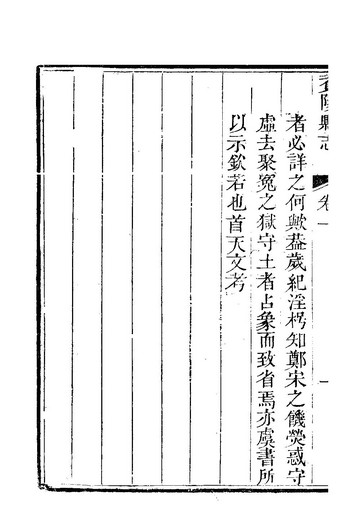 陵縣志 卷一
者必詳之何歟葢歲紀淫枵知鄭宋之饑熒惑守
虛去聚冤之獄守土者占象而致省焉亦虞書所
以示欽若也首天文考